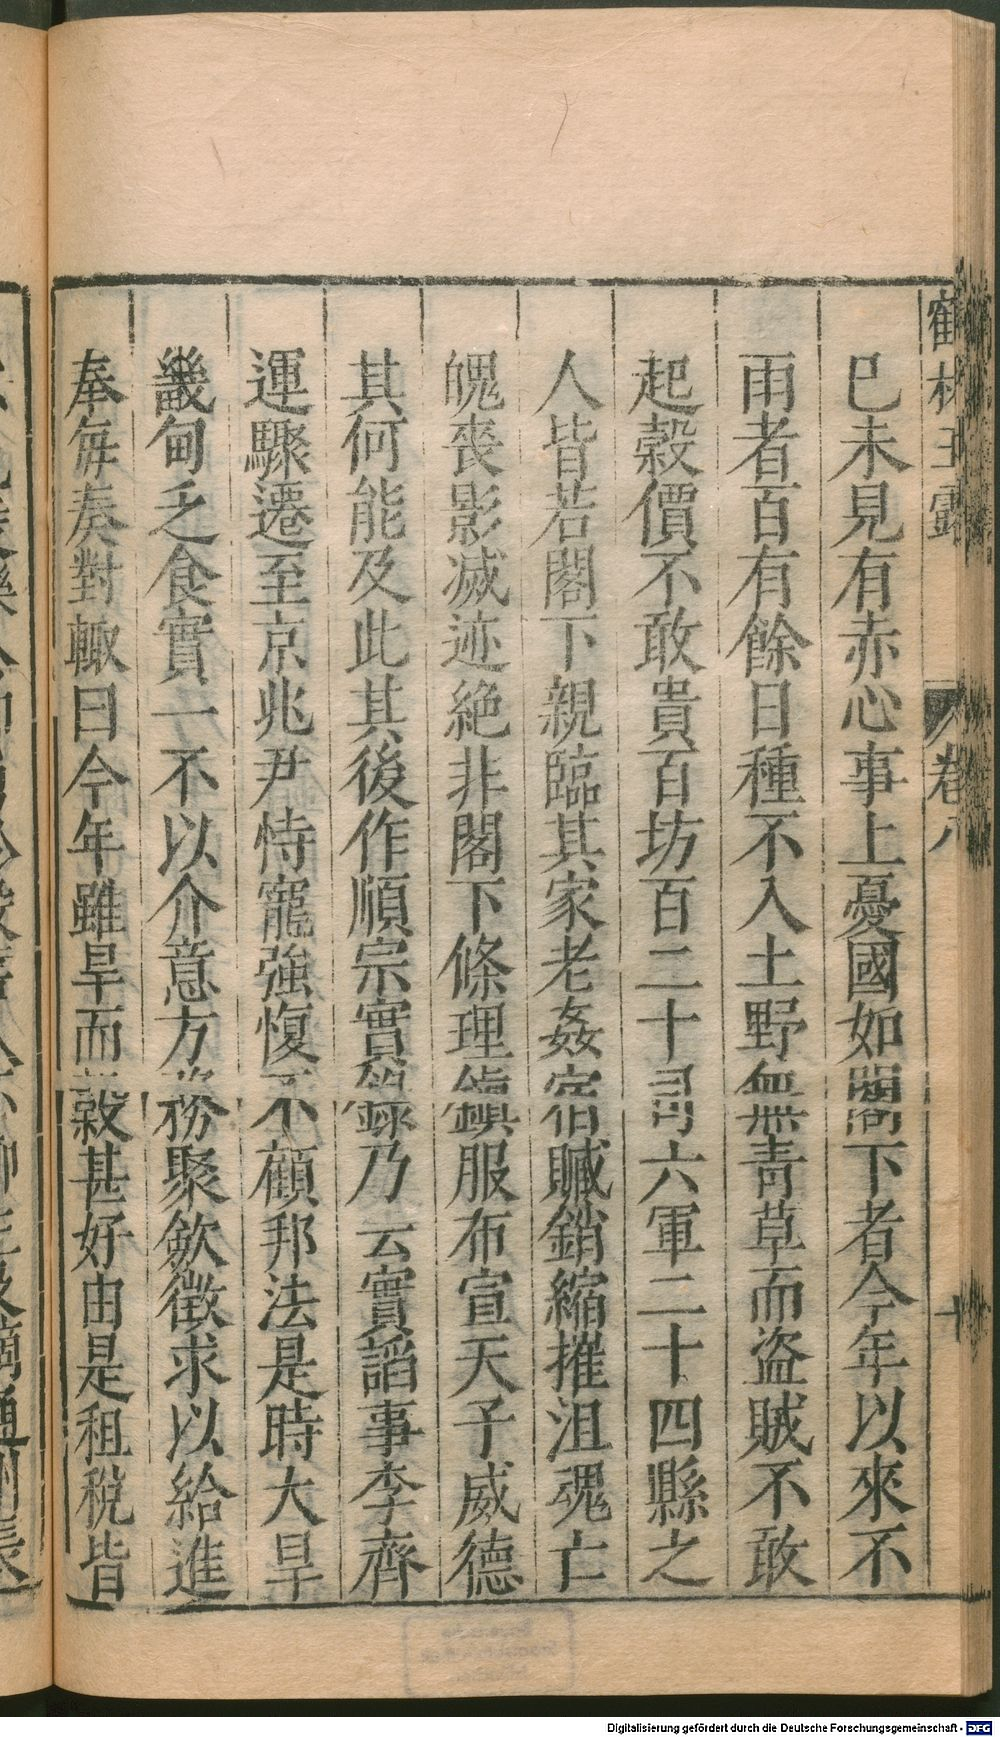 鶴林玉露 卷八 十
巳未見有赤心事上憂國如閣下者今年以來不
雨者百有餘日種不入土野無青草而盜賊不敢
起穀價不敢貴百坊百二十司六軍二十四縣之
人皆若閣下親臨其家老姦宿贓銷縮摧沮魂亡
魄喪影滅迹絶非閣下條理鎮服布宣天子威德
其何能及此其後作順宗實錄乃云實謟事李齊
運驟遷至京兆尹恃寵強愎不顧邦法是時大旱
畿甸乏食實一不以介意方務聚歛徵求以給進
奉每奏對輙曰今年雖旱而穀甚好由是租稅皆
Digitalisierung gefördert durch die Deutsche Forschungsgemeinschaft - DFG